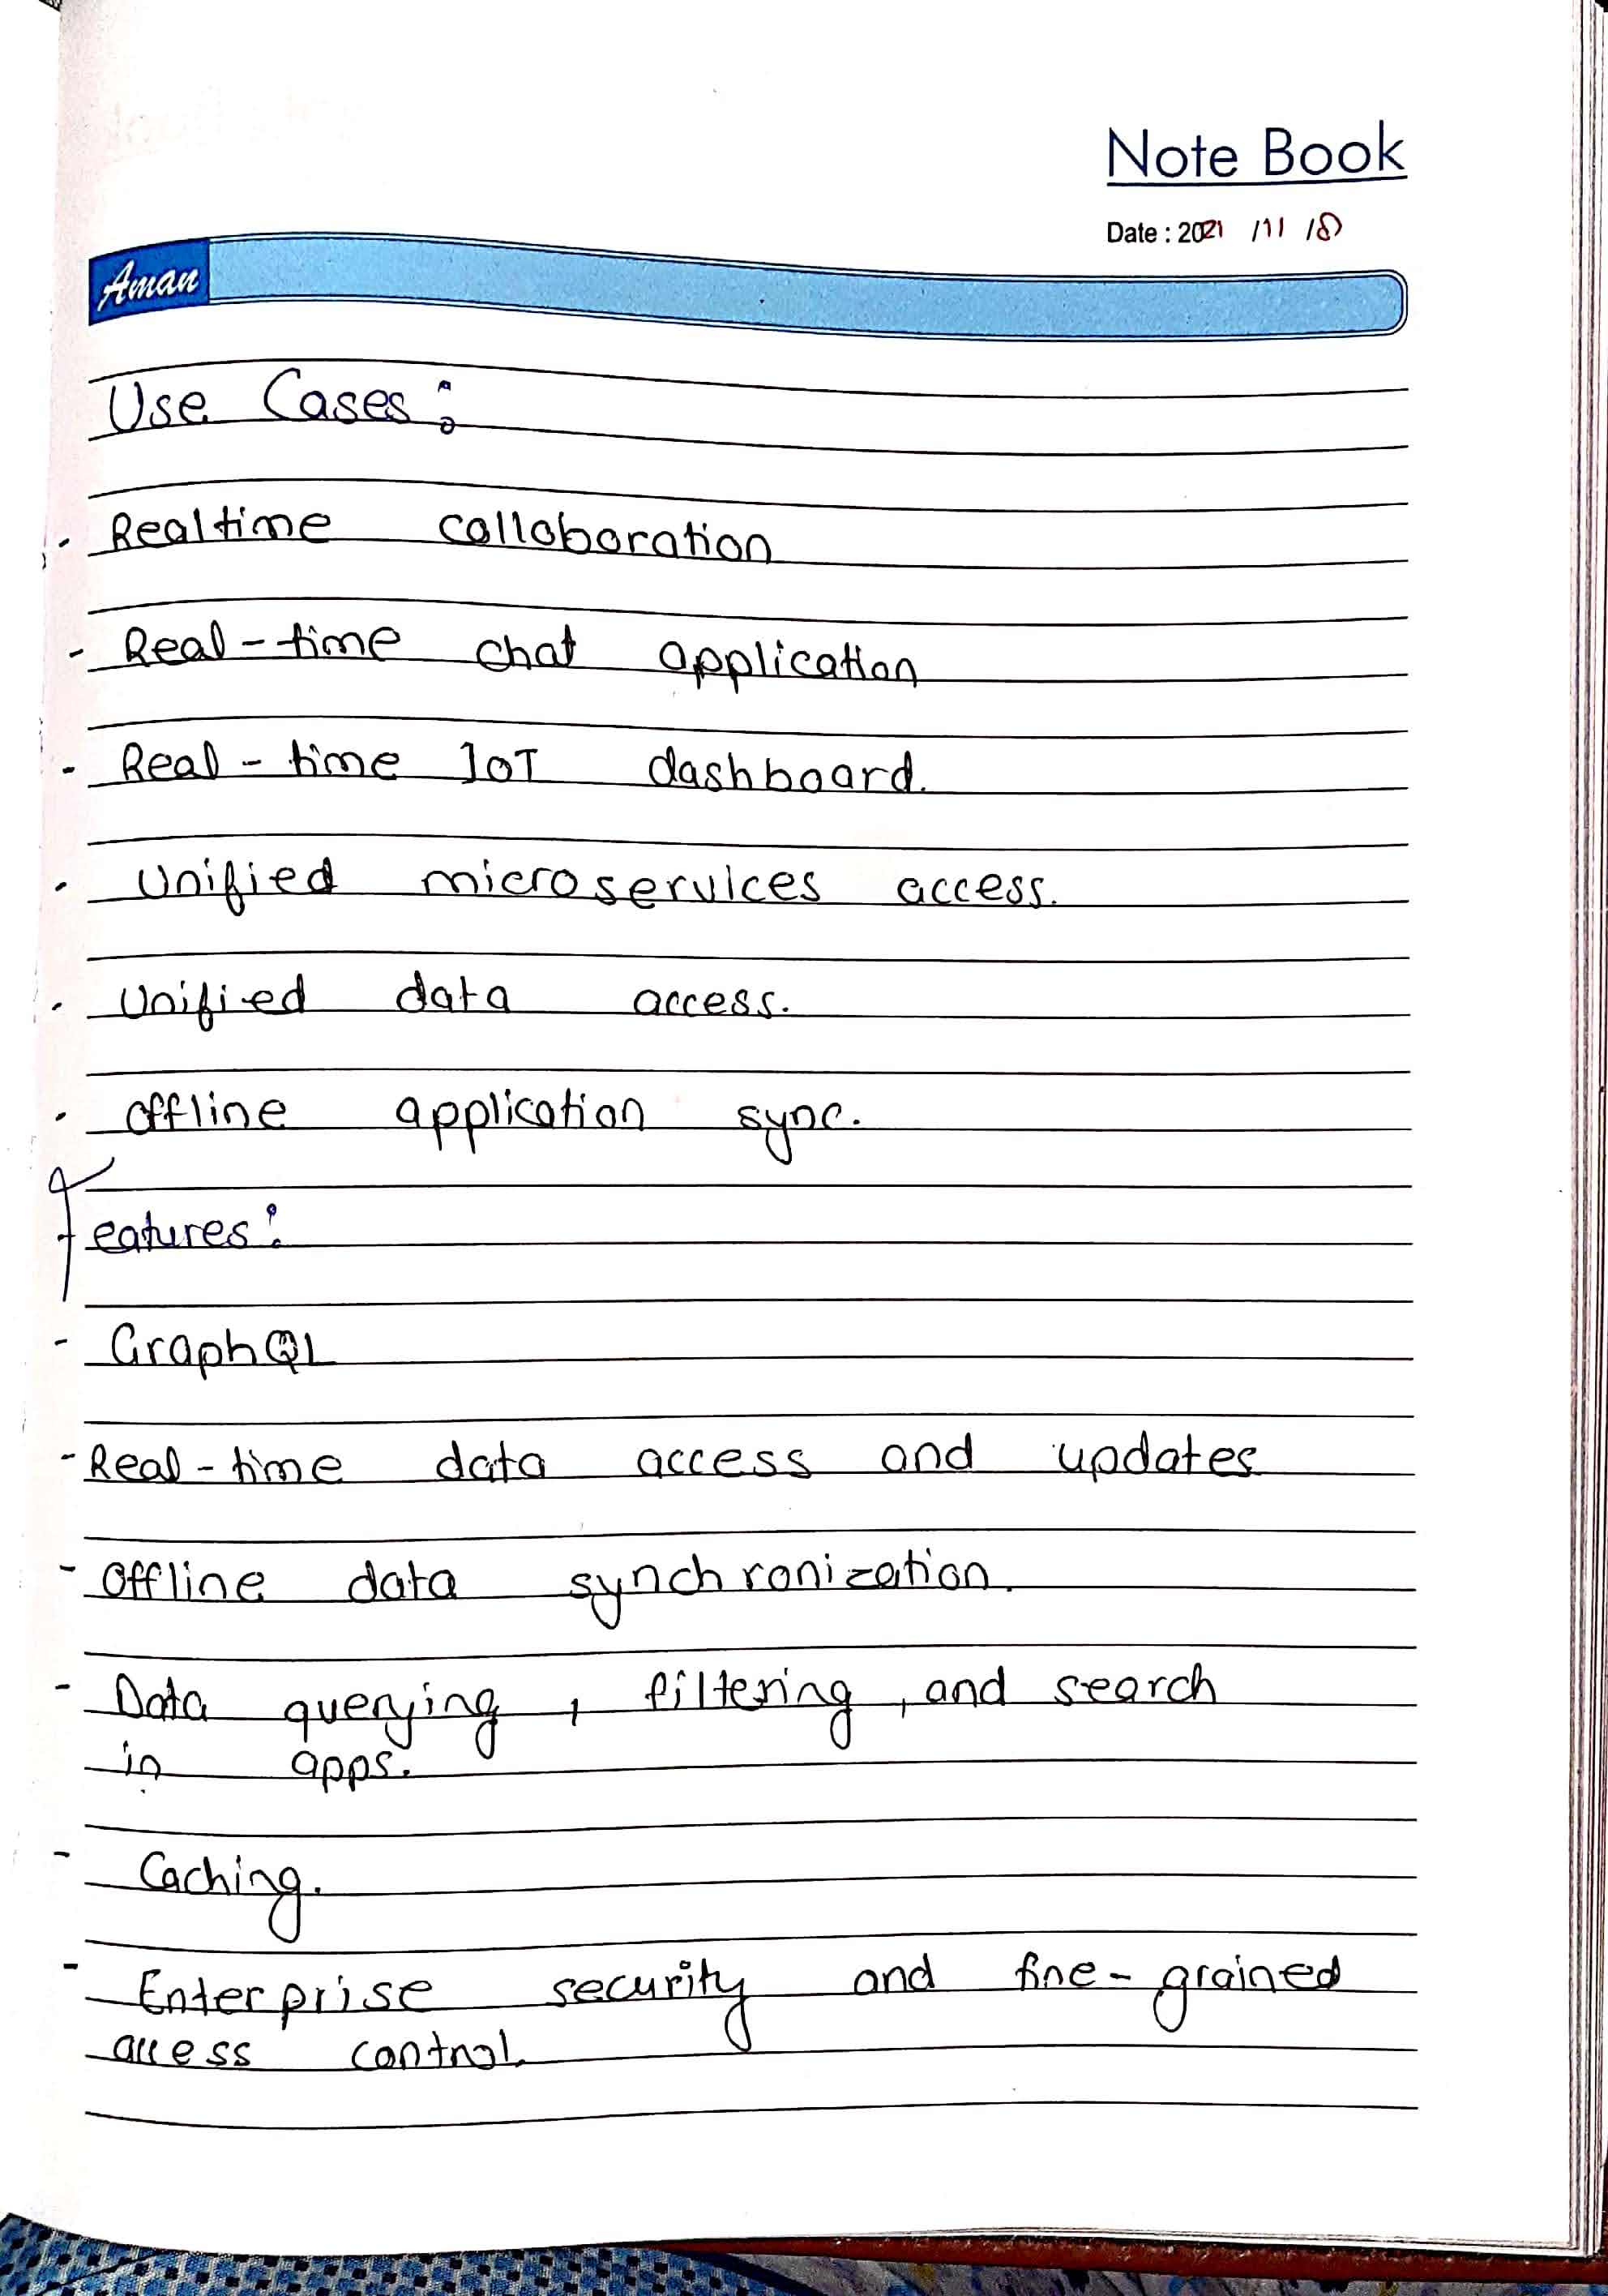 Note Book
Date : 2021 /11 /8
Aman
Use Cases:
- Realtime collaboration
- Real-time chat application
- Real-time IoT dashboard.
- Unified microservices access.
- Unified data access.
- Offline application sync.
features:
- GraphQL
- Real-time data access and updates
- Offline data synchronization.
- Data querying, filtering, and search
in apps.
- Caching.
- Enterprise security and fine-grained
access control.